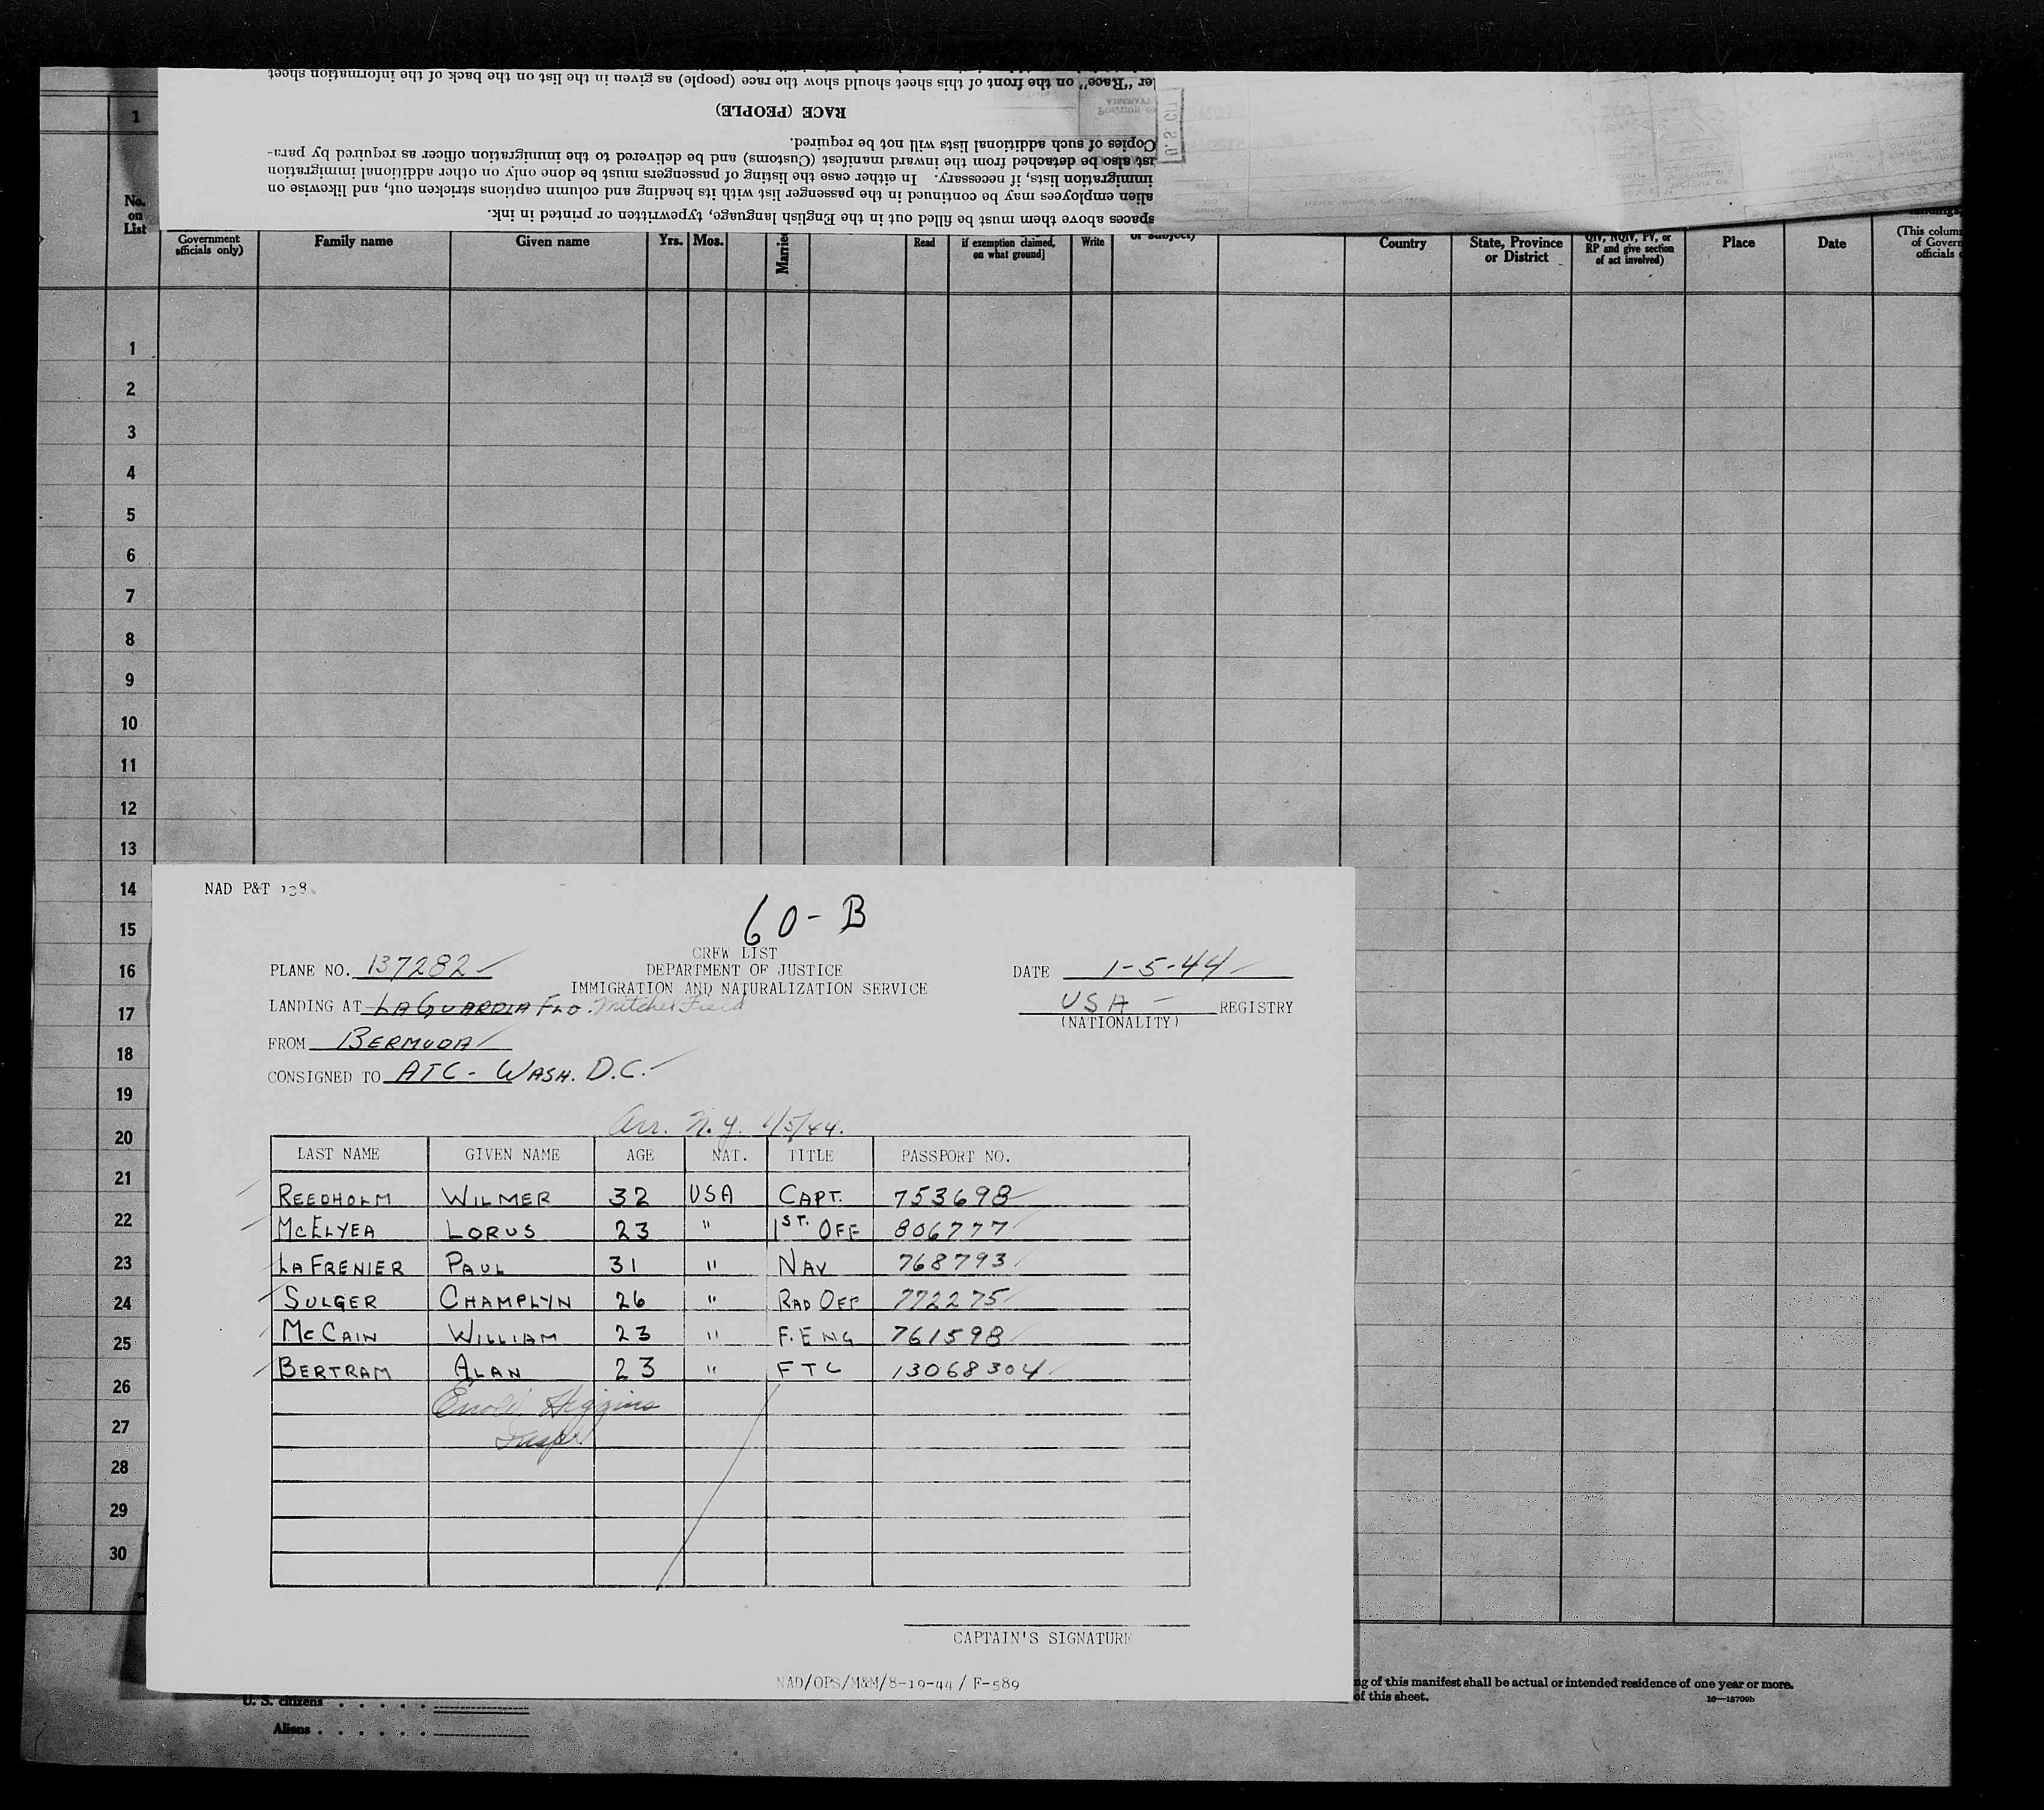 ler "Race," on the front of this sheet should show the race (people) as given in the list on the back of the information sheet
RACE (PEOPLE)
Copies of such additional lists will not be required.
ust also be detached from the inward manifest (Customs) and be delivered to the immigration officer as required by para-
immigration lists, if necessary. In either case the listing of passengers must be done only on other additional immigration
alien employees may be continued in the passenger list with its heading and column captions stricken out, and likewise on
spaces above them must be filled out in the English language, typewritten or printed in ink.
1
No. on List
Government officials only)
Family name
Given name
Yrs.
Mos.
Married
Read
if exemption claimed, on what ground]
Write
or subject)
Country
State, Province or District
QIV, NQIV, PV, or RP and give section of act involved)
Place
Date
(This colum
of Govern
officials
1
2
3
4
5
6
7
8
9
10
11
12
13
14
15
16
17
18
19
20
21
22
23
24
25
26
27
28
29
30
NAD P&T 138
60-B
CREW LIST
PLANE NO. 137282
DEPARTMENT OF JUSTICE
DATE 1-5-44
IMMIGRATION AND NATURALIZATION SERVICE
LANDING AT LAGUARDIA FLD. Mitchel Field
USA REGISTRY
(NATIONALITY)
FROM BERMUDA
CONSIGNED TO ATC - WASH. D.C.
Arr. N.Y. 1/5/44.
LAST NAME GIVEN NAME AGE NAT. TITLE PASSPORT NO.
REEDHOLM WILMER 32 USA CAPT. 753698
McELYEA LORUS 23 " 1ST. OFF 806777
LAFRENIER PAUL 31 " NAV 768793
SULGER CHAMPLYN 26 " RAD OFF 772275
McCAIN WILLIAM 23 " F. ENG 761598
BERTRAM ALAN 23 " FTC 13068304
Higgins
Insp
CAPTAIN'S SIGNATURE
NAD/OPS/M&M/8-19-44/F-589
U. S. citizens . . . . .
Aliens . . . . . .
ng of this manifest shall be actual or intended residence of one year or more.
of this sheet.
16—18709b